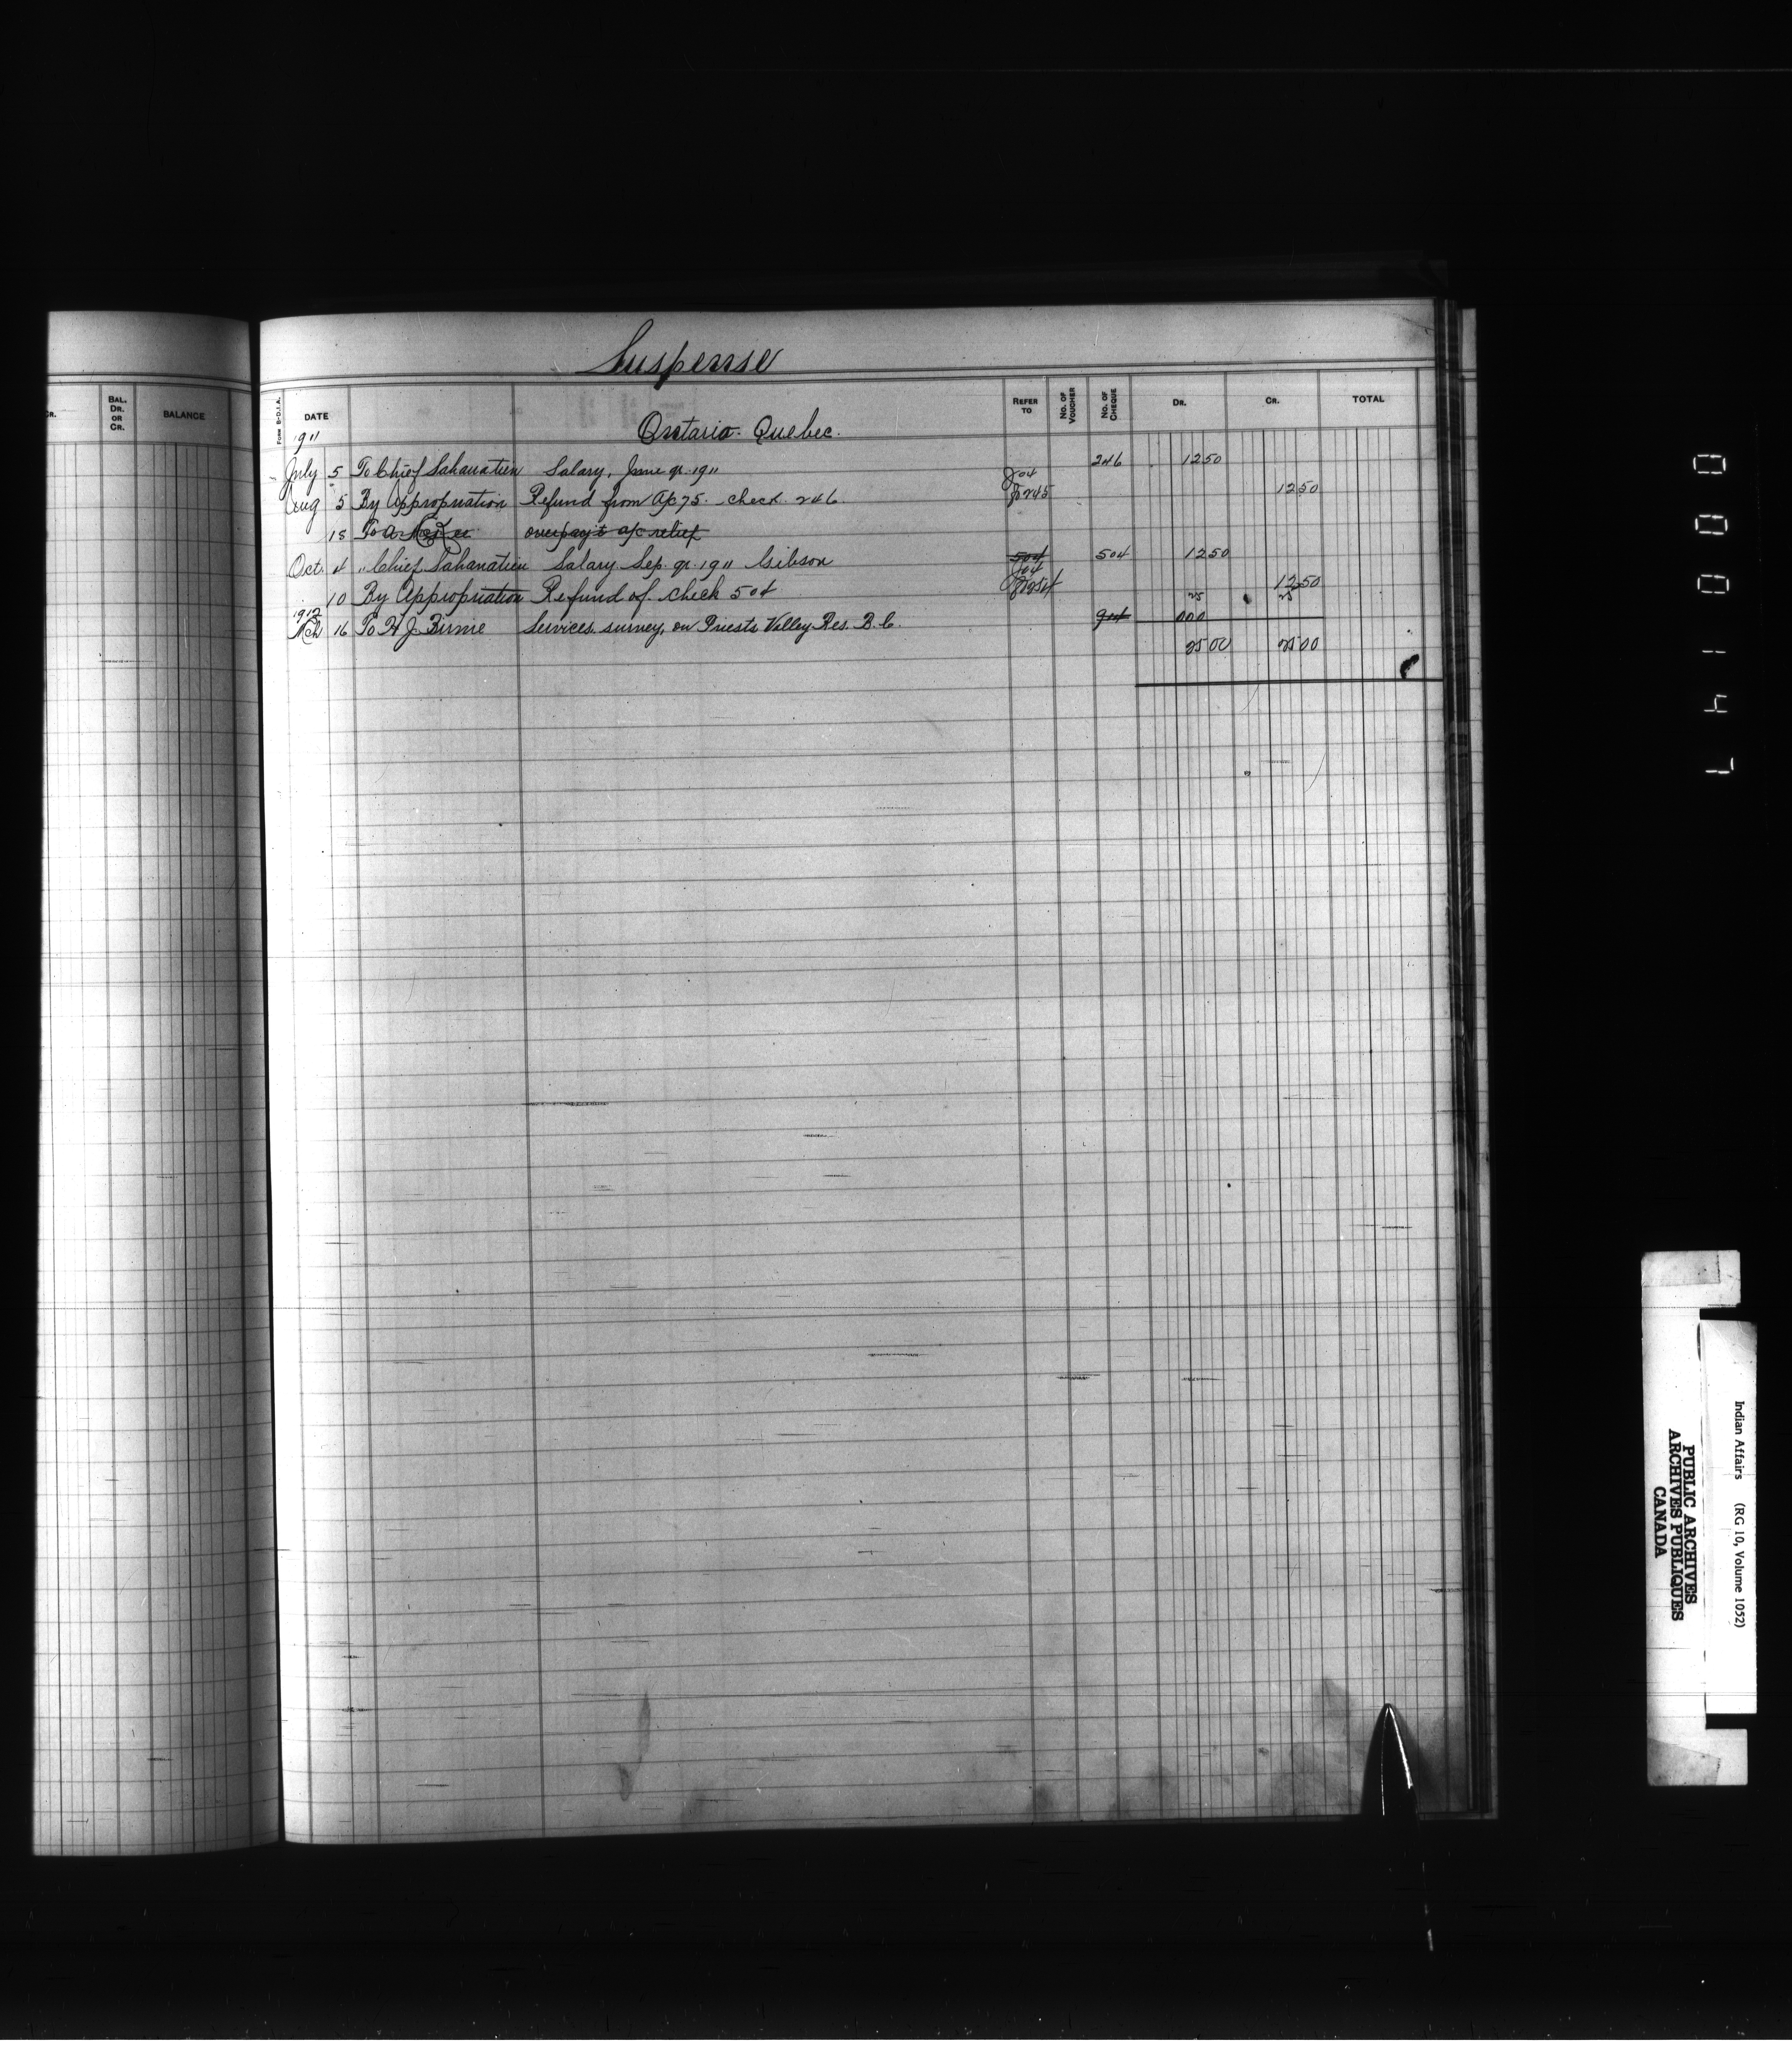 Suspense
CR. BAL. DR. OR CR. BALANCE
FORM B-D.I.A. DATE REFER TO NO. OF VOUCHER NO. OF CHEQUE DR. CR. TOTAL
1911 Ontario. Quebec.
July 5 To Chief Sahanatien Salary, June qr. 1911 246 1250
Aug 5 By Appropriation Refund from Ap 75. check 246 1250
18 To A overpay't a/c relief
Oct. 4 " Chief Sahanatien Salary Sep. qr. 1911 Gibson 504 504 1250
10 By Appropriation Refund of check 504 1250
25 25
1912
Mch 16 To H J. Birnie Services survey, on Priests Valley Res. B.C. 914 000
2500 2500
0 0 0 1 4 7
Indian Affairs (RG 10, Volume 1052)
PUBLIC ARCHIVES
ARCHIVES PUBLIQUES
CANADA